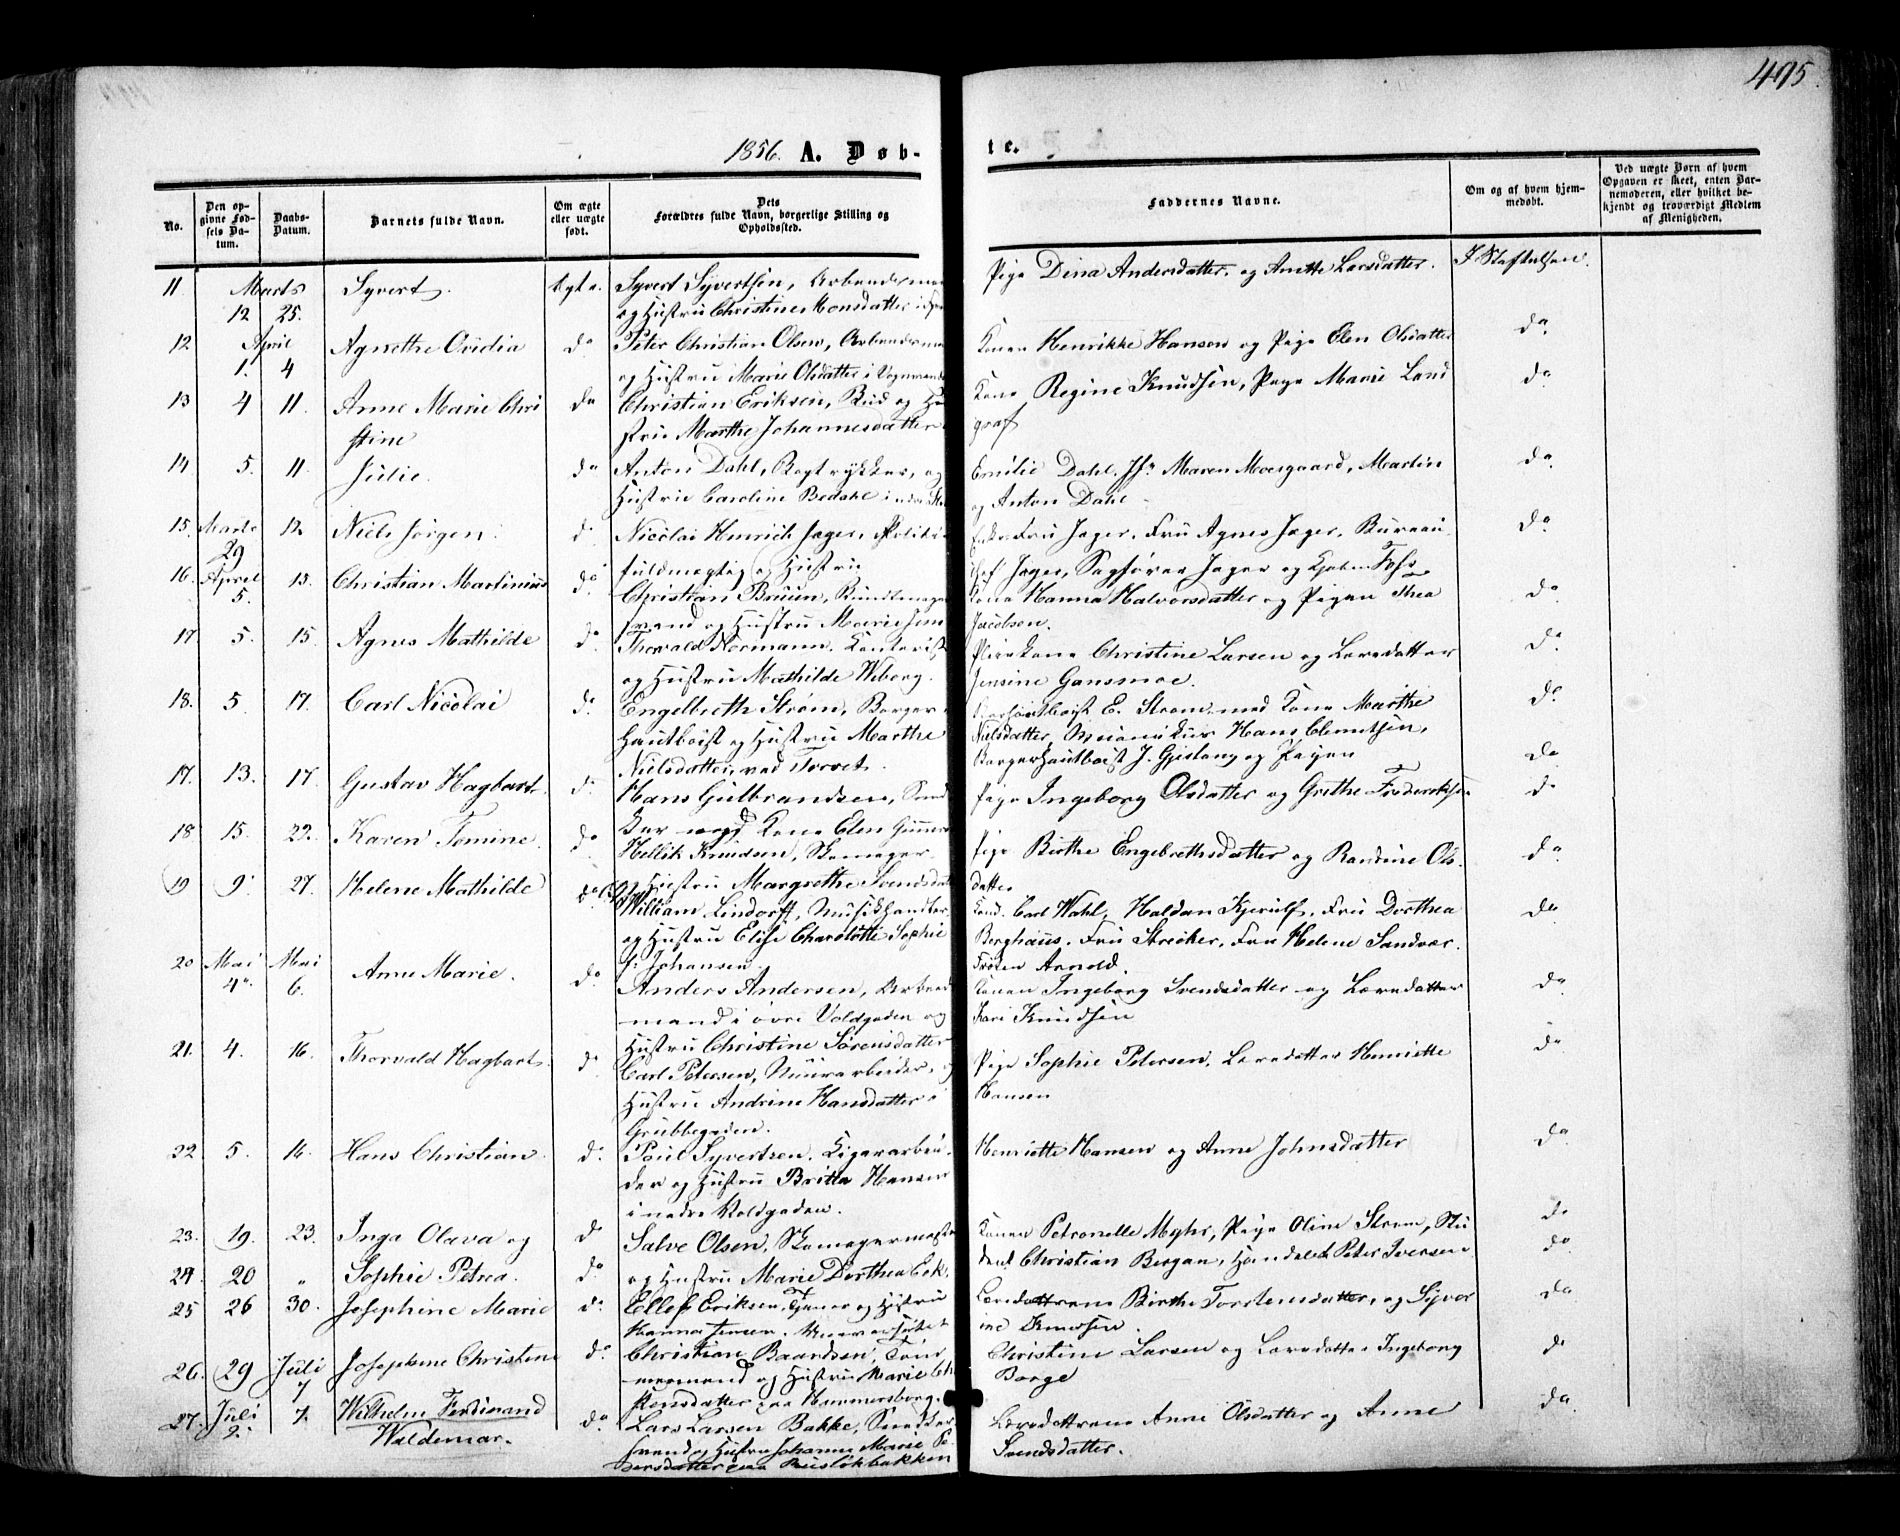 495.
1856. A. Døb-
te.
No.
Den op-
givne Fød-
sels Da-
tum.
Daabs-
Datum.
Barnets fulde Navn.
Om ægte
eller uægte
født.
Dets
Forældres fulde Navn, borgerlige Stilling og
Opholdssted.
Faddernes Navne.
Om og af hvem hjem-
medøbt.
Ved uægte Børn af hvem
Opgaven er skeet, enten Bar-
nemoderen, eller hvilket be-
kjendt og troværdigt Medlem
af Menigheden.
11 Marts 12 25. Syvert. ægte.
Syvert Syvertsen, Arbeidsman
og Hustru Christine Monsdatter
Pige Dina Andersdatter, og Anette Larsdatter.
12 April 1. 4 Agnethe Ovidia do
Peter Christian Olsen, Arbeidsman
og Hustru Marie Olsdatter i
Konen Henrikke Hansen og Pige Elen Olsdatter do
13 4 11. Anne Marie Chri
stine do
Christian Eriksen, Bud og Hu
stru Marthe Johannesdatter
Kone Regine Knudsen, Pige Marie Land
graf do
14 5. 11. Julie. do
Anton Dahl, Bogtrykker, og
Hustru Caroline
Emilie Dahl, Jfr Maren Moesgaard, Martin
og Anton Dahl do
15. Marts 29 12 Niels Jørgen. do
Nicolai Henrich Jager, Politi
fuldmægtig og Hustru
Fru Jager, Fru Agnes Jager, Bureau
chef Jager, Sagfører Jager og do
16. April 5. 13. Christian Martinius do
Christian Bruun, Bundtmager
svend og Hustru Marie
Kone Hanna Halvorsdatter og Pigen Thea
Jacobsen. do
17 5. 15. Agnes Mathilde do
Thorvald Normann, Kontorist
og Hustru Mathilde Wiborg.
Pleiekone Christine Larsen og Læredatter
Jensine Gansmoe. do
18. 5 17. Carl Nicolai do
Engelbreth Strøm, Borger
Hautboist og Hustru Marthe
Nielsdatter, ved Torvet.
E. Strøm med Kone Marthe
Nielsdatter, Hans Clemetsen,
Borgerhautboist J. og Pigen do
17. 13. 17. Gustav Hagbart. do
Hans Gulbrandsen, Sned
ker med Kone Elen
Pige Ingeborg Olsdatter og Grethe Frederiksen do
18 15. 22. Karen Tomine. do
Hellik Knudsen, Skomager
og Hustru Margrethe Svendsdat
Pige Birthe Engebrethsdatter og Randine Ols
datter do
19 9. 27. Helene Mathilde do
William Lindorff, Musikhandler,
og Hustru Elise Charolotte Sophie
f. Johansen.
Cand. Carl Wahl, Haldan Kjerulf, Fru Dorthea
Berghaus, Fru Strecker, Fru Helene Sandvær
Frøken Arnold. do
20 Mai 4. Mai 6. Anne Marie. do
Anders Andersen, Arbeids
mand i øvre Voldgaden og
Hustru Christine Sørensdatter
Konen Ingeborg Svendsdatter og Læredatter
Kari Knudsen do
21. 4. 16. Thorvald Hagbart. do
Carl Petersen, Muurarbeider, og
Hustru Andrine Hansdatter i
Grubbegaden.
Pige Sophie Petersen, Læredatter Henriette
Hansen do
22 5. 16. Hans Christian. do
Poul Syvertsen, Cigararbei
der og Hustru Britta Hansen
i nedre Voldgaden.
Henriette Hansen og Anne Johnsdatter do
23. 19. 23. Inga Olava og do
24. 20 " Sophie Petrea. do
Salve Olsen, Skomagermester
og Hustru Marie Dorthea
Konen Petronelle Myhr, Pige Oline Strøm, Stu
dent Christian Bergan, Handelsb. Peter Iversen do
do
25 26 30. Josephine Marie do
Ellef Eriksen, Tjener og Hustru
Hanna Jensen,
Læredattrene Birthe Torstensdatter, og Syver
ine do
26. 29 Juli 7 Josephine Christine do
Christian Baardsen, Tøm
mermand og Hustru Marie
paa Hammersborg.
Christine Larsen og Læredatter Ingeborg
Borge do
27. Juli 2. 7. Wilhelm Ferdinand
Waldemar. do
Lars Larsen Bakke, Snedker
svend og Hustru Johanne Marie Pe
dersdatter paa Ruseløkbakken
Læredattrene Anne Olsdatter og Anne
Svendsdatter. do